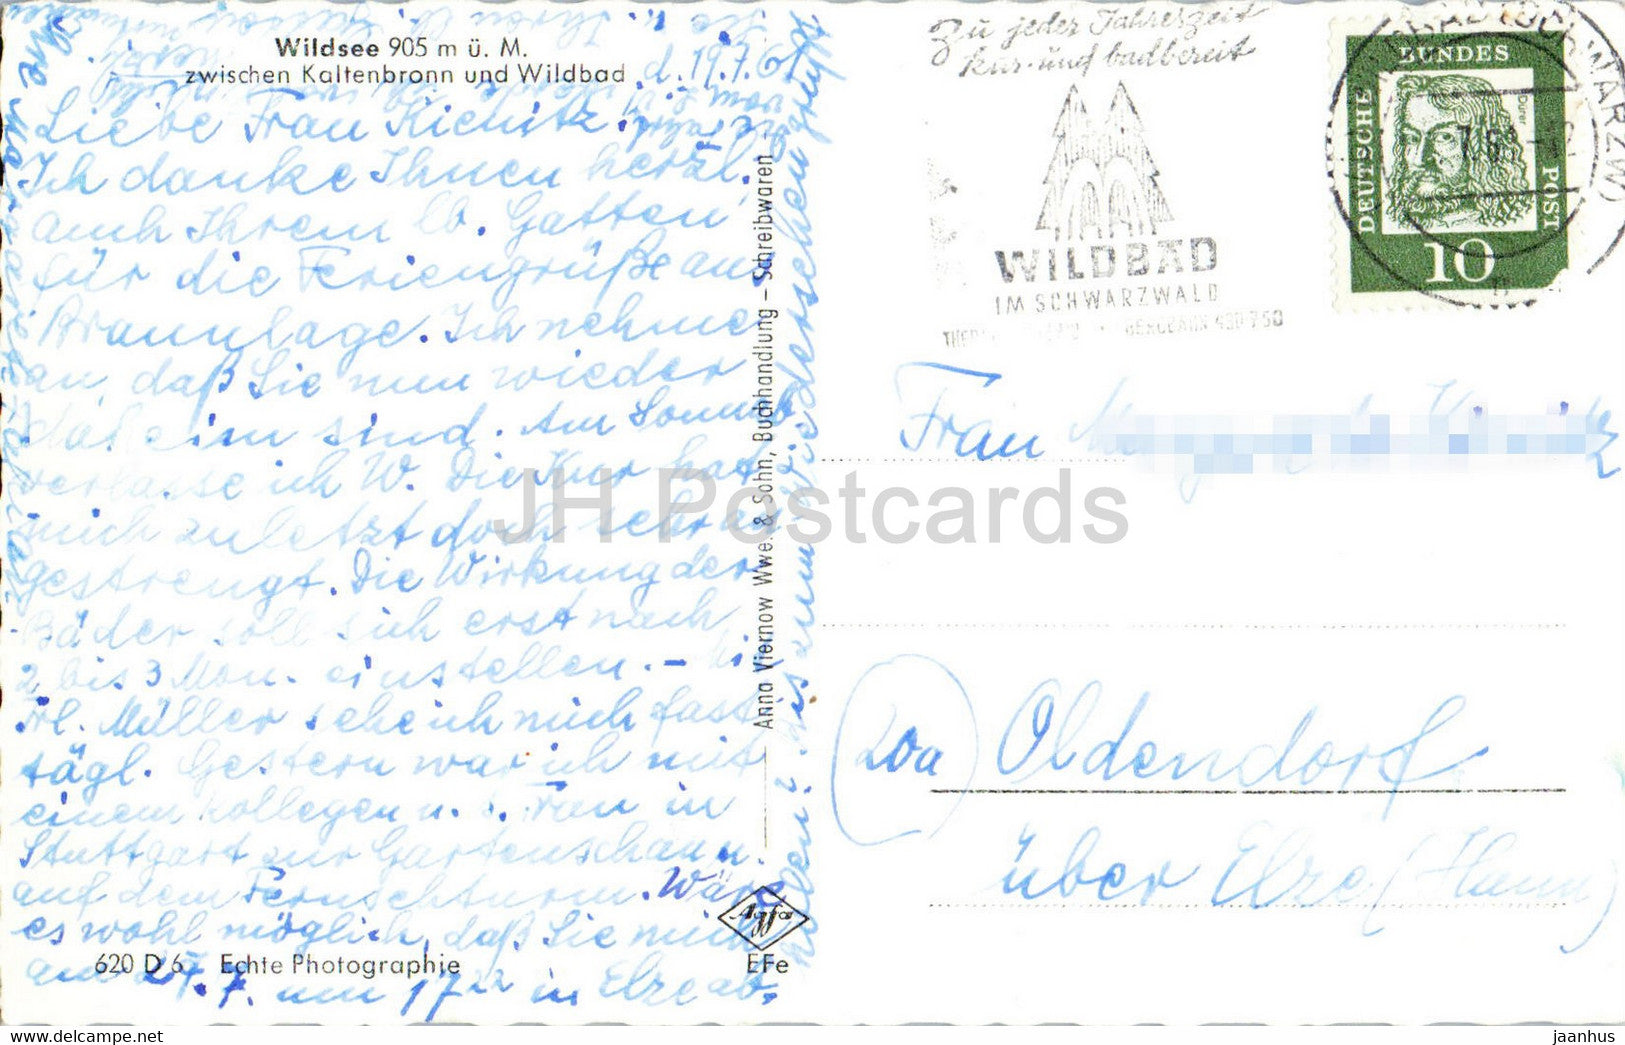 Wildsee 905 m ü. M.
zwischen Kaltenbronn und Wildbad
d. 19.7.61
Liebe Frau Kienitz!
Ich danke Ihnen herzl.
auch Ihrem lb. Gatten
für die Feriengrüße aus
Braunlage. Ich nehme
an, daß Sie nun wieder
daheim sind. Am Sonnab.
verlasse ich W. Die Kur hat
mich zuletzt doch sehr an-
gestrengt. Die Wirkung der
Bäder soll sich erst nach
2 bis 3 Mon. einstellen. – Mit
Frl. Müller sehe ich mich fast
tägl. Gestern war ich mit
einem Kollegen u. s. Frau in
Stuttgart zur Gartenschau u.
auf dem Fernsehturm. Wäre
es wohl möglich, daß Sie mich
am 24.7. um 17 in Elze ab-
holen? Bis zum Wiedersehen grüßt
Sie u. Ihren lb.
620 D 6 Echte Photographie
Agfa
EFe
Anna Viernow Wwe. & Sohn, Buchhandlung – Schreibwaren
Zu jeder Jahreszeit
kur- und badbereit
WILDBAD
IM SCHWARZWALD
BERGBAHN 430-750
DEUTSCHE
BUNDES
POST
Dürer
10
(SCHWARZW)
Frau
20a
Oldendorf
über Elze (Hann)
JH Postcards
www.hippostcard.com
jaanhus